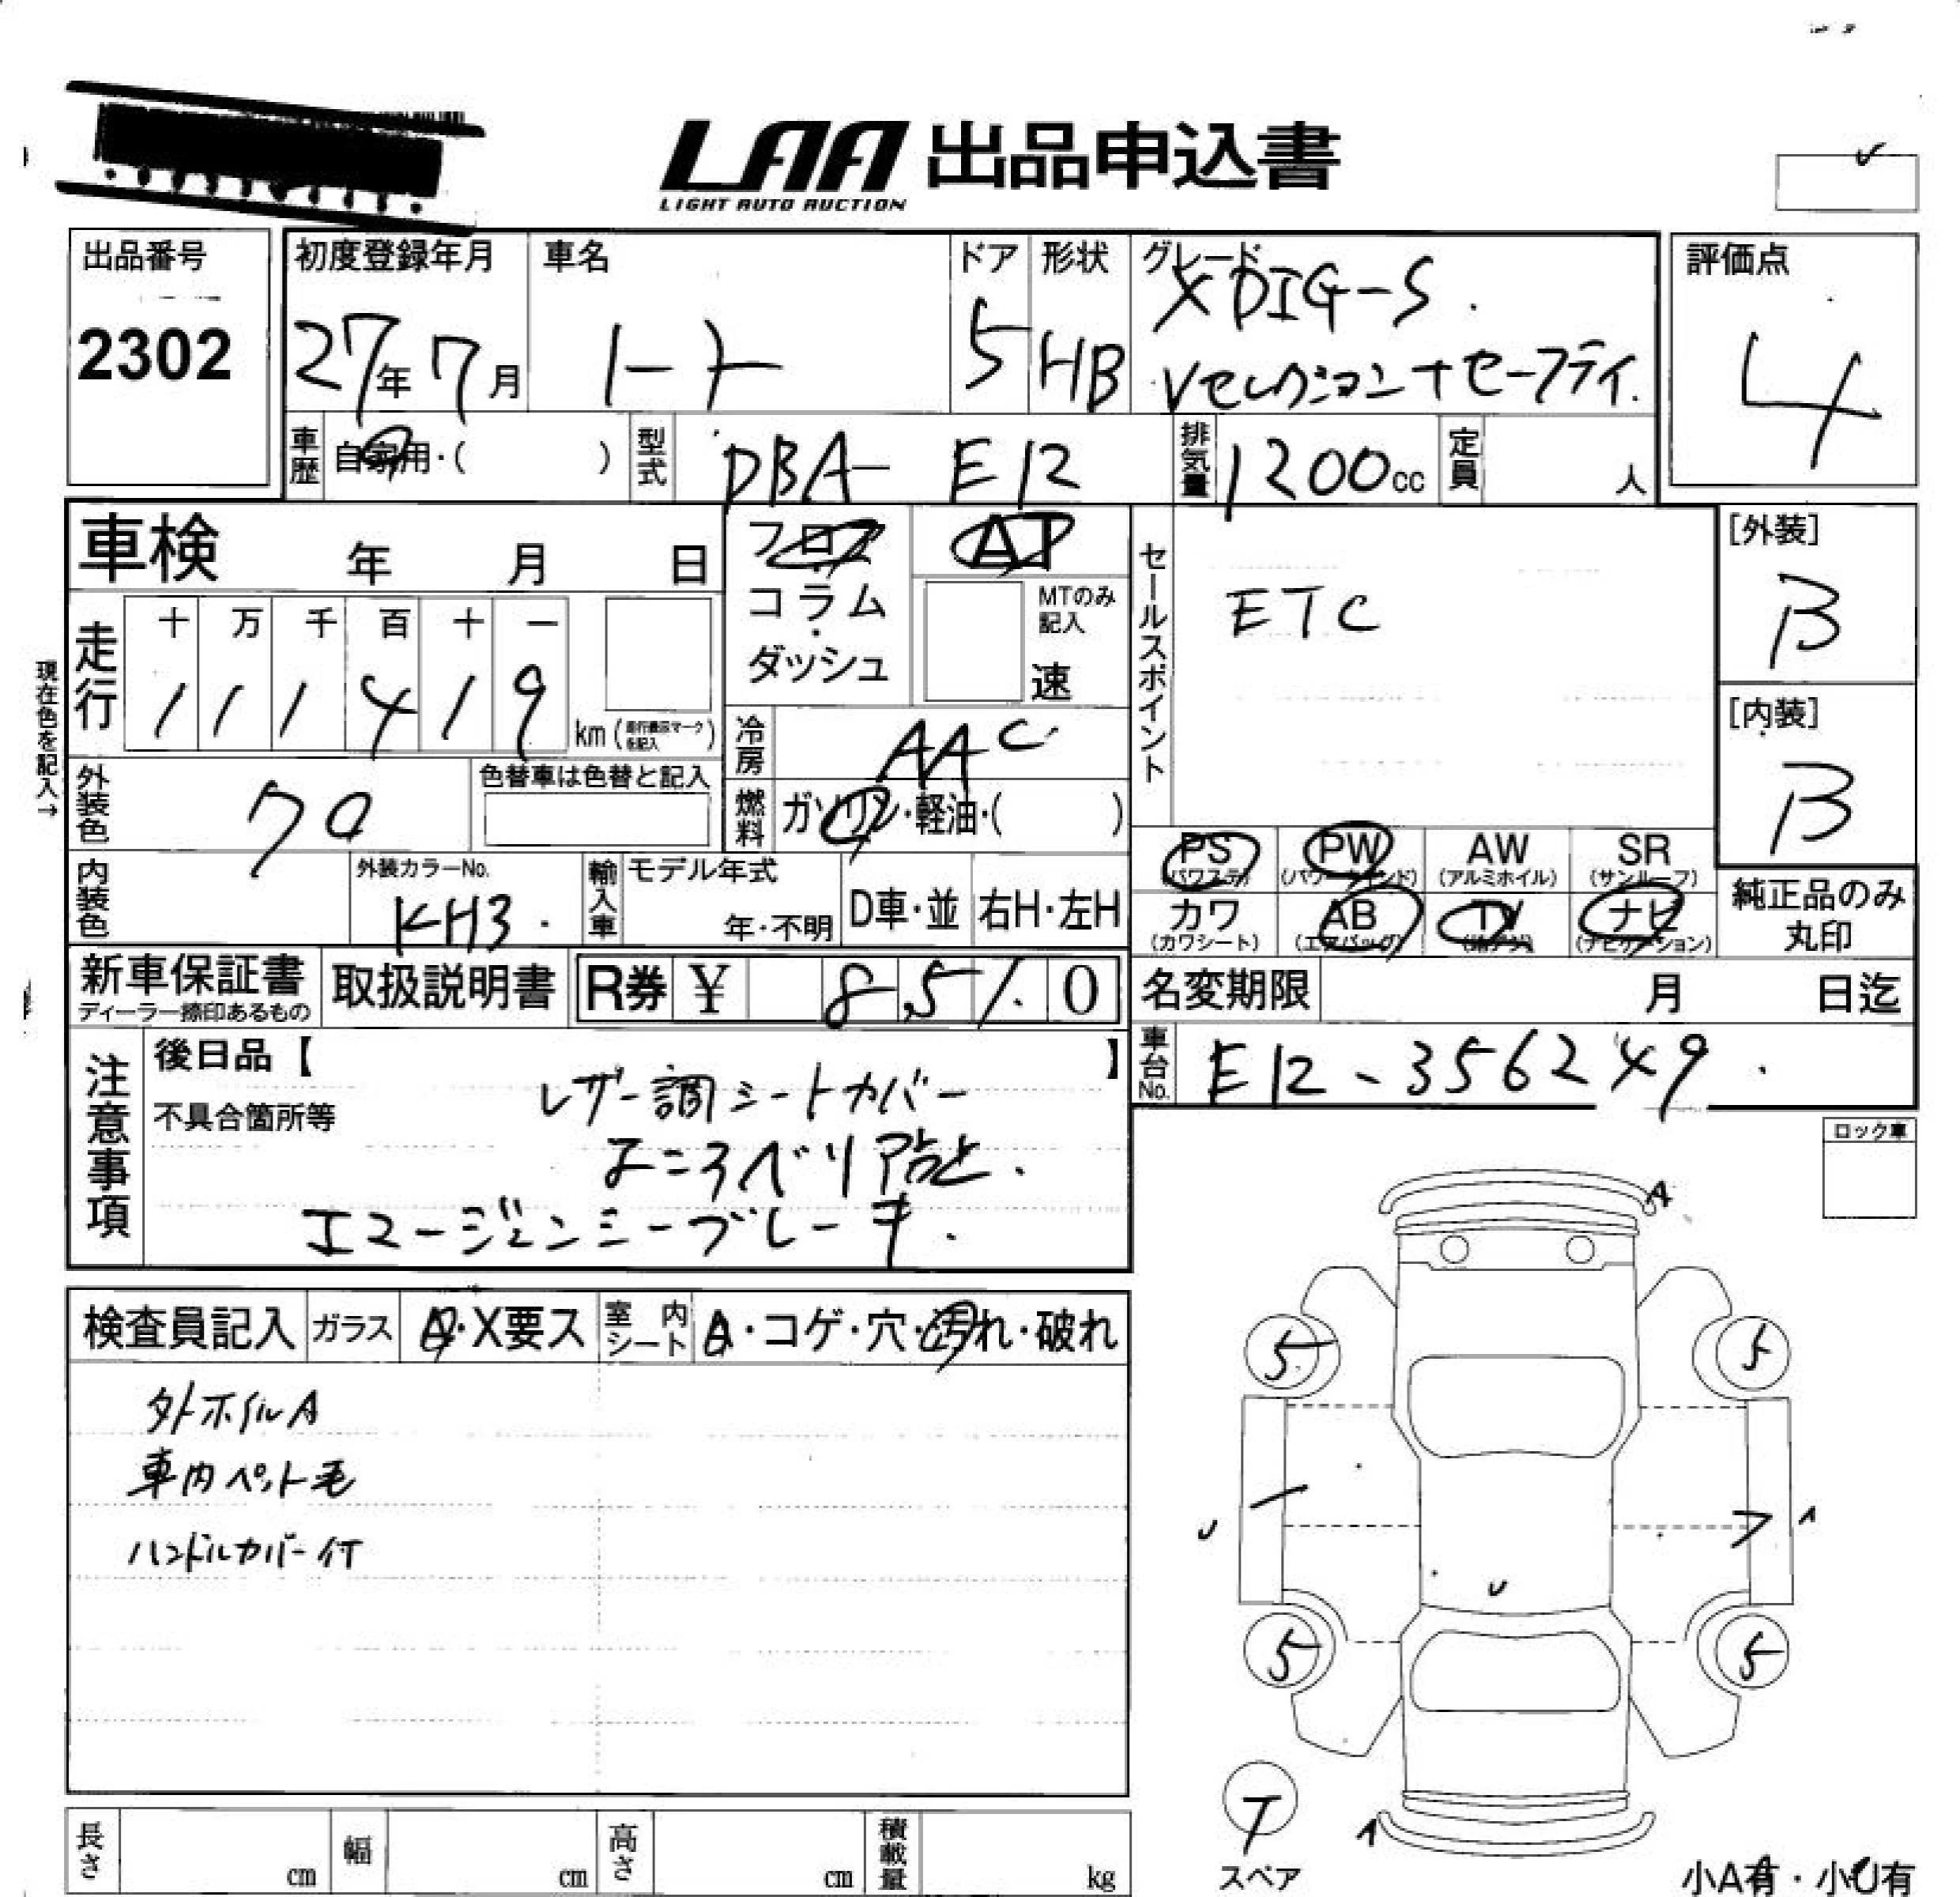 LAA 出品申込書
LIGHT AUTO AUCTION
出品番号
2302
初度登録年月
27年 7月
車名
ノート
ドア
5
形状
HB
グレード
X DIG-S
Vセレクション+セーフティ
評価点
4
車歴
自家用・( )
型式
DBA- E12
排気量
1200cc
定員
人
車検 年 月 日
フロア
コラム
・
ダッシュ
AT
MTのみ
記入
速
セールスポイント
ETC
[外装]
B
[内装]
B
現在色を記入→
走行
十 万 千 百 十 一
1 1 1 4 1 9
km(走行表示マークを記入)
冷房
AAC
外装色
クロ
色替車は色替と記入
燃料
ガソリン・軽油・( )
内装色
外装カラーNo.
KH3
輸入車
モデル年式
年・不明
D車・並
右H・左H
PS
(パワステ)
PW
(パワーウインド)
AW
(アルミホイル)
SR
(サンルーフ)
カワ
(カワシート)
AB
(エアバッグ)
TV
ナビ
(ナビゲーション)
純正品のみ
丸印
新車保証書
ディーラー捺印あるもの
取扱説明書
R券 ¥ 8510
名変期限 月 日迄
車台No.
E12-356249
注意事項
後日品【 】
不具合箇所等
レザー調シートカバー
よころべり防止
エマージェンシーブレーキ
ロック車
検査員記入
ガラス
A・X要ス
室内シート
A・コゲ・穴・汚れ・破れ
外ホイルA
車内ペット毛
ハンドルカバー付
A
5
5
U
A
U
5
5
T
スペア
A
小A有・小U有
長さ
cm
幅
cm
高さ
cm
積載量
kg